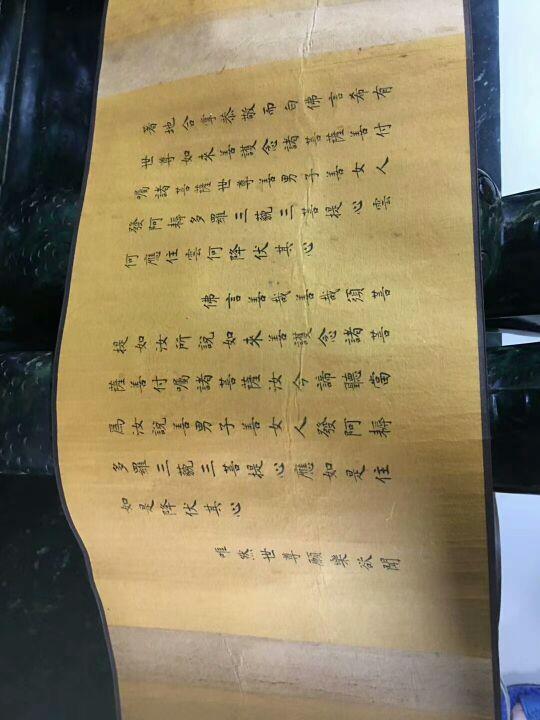 著地合掌恭敬而白佛言希有
世尊如來善護念諸菩薩善付
囑諸菩薩世尊善男子善女人
發阿耨多羅三藐三菩提心雲
何應住雲何降伏其心
佛言善哉善哉須菩
提如汝所說如來善護念諸菩
薩善付囑諸菩薩汝今諦聽當
爲汝說善男子善女人發阿耨
多羅三藐三菩提心應如是住
如是降伏其心
唯然世尊願樂欲聞